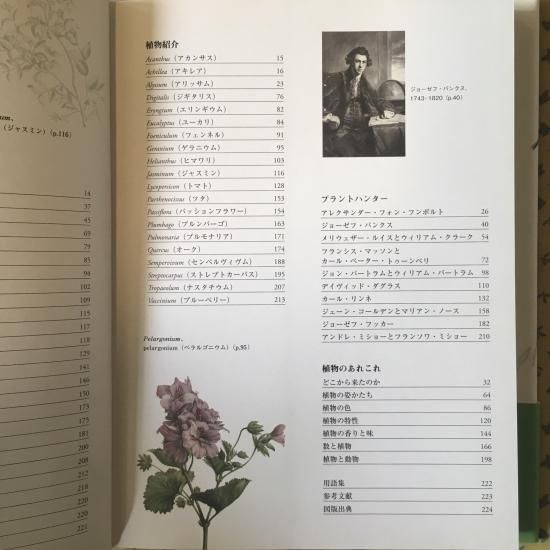 um,
(ジャスミン) (p.116)
14
37
45
69
79
85
94
102
104
118
129
141
146
150
173
175
181
200
208
212
218
220
220
221
植物紹介
Acanthus (アカンサス) 15
Achillea (アキレア) 16
Alyssum (アリッサム) 23
Digitalis (ジギタリス) 76
Eryngium (エリンギウム) 82
Eucalyptus (ユーカリ) 84
Foeniculum (フェンネル) 91
Geranium (ゲラニウム) 95
Helianthus (ヒマワリ) 103
Jasminum (ジャスミン) 116
Lycopersicon (トマト) 128
Parthenocissus (ツタ) 153
Passiflora (パッションフラワー) 154
Plumbago (プルンバーゴ) 163
Pulmonaria (プルモナリア) 171
Quercus (オーク) 174
Sempervivum (センペルヴィヴム) 188
Streptocarpus (ストレプトカーパス) 195
Tropaeolum (ナスタチウム) 207
Vaccinium (ブルーベリー) 213
Pelargonium,
pelargonium (ペラルゴニウム) (p.95)
ジョーゼフ・バンクス,
1743-1820 (p.40)
プラントハンター
アレクサンダー・フォン・フンボルト 26
ジョーゼフ・バンクス 40
メリウェザー・ルイスとウィリアム・クラーク 54
フランシス・マッソンと
カール・ペーター・トゥーンベリ 72
ジョン・バートラムとウィリアム・バートラム 98
デイヴィッド・ダグラス 110
カール・リンネ 132
ジェーン・コールデンとマリアン・ノース 158
ジョーゼフ・フッカー 182
アンドレ・ミショーとフランソワ・ミショー 210
植物のあれこれ
どこから来たのか 32
植物の姿かたち 64
植物の色 86
植物の特性 120
植物の香りと味 144
数と植物 166
植物と動物 198
用語集 222
参考文献 223
図版出典 224